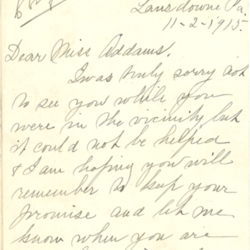 Lansdowne Pa.
11-2-1915
Dear Miss Addams,
I was truly sorry not
to see you while you
were in the vicinity but
it could not be helped
& I am hoping you will
remember to keep your
promise and let me
know when you are